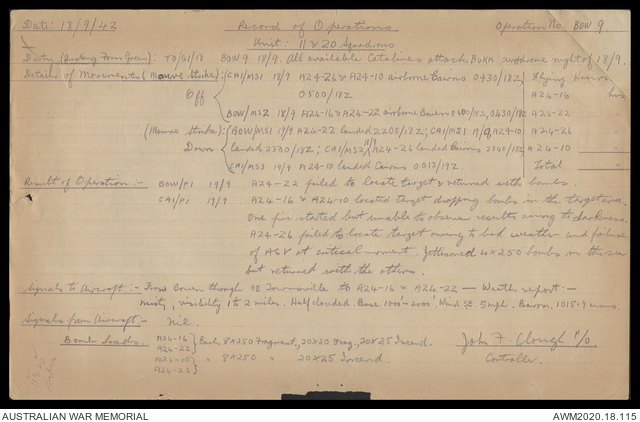 Date: 18/9/42 Record of Operations Operation No. BOW 9.
Unit: 11 & 20 Squadrons
Duty : TO/GI/18 BOW 9 18/9. All available Catalinas attack BUKA aerodrome night of 18/9.
Details of Movements (Mauve Strike): CAI/MS1 18/9 A24-26 & A24-10 airborne Cairns 0430/18Z Flying Hours
Off 0500/18Z A24-16 hrs
BOW/MS2 18/9 A24-16 & A24-22 airborne Bowen 0400/18Z, 0430/18Z A24-22 -
(Mauve Strike): BOW/MS1 19/9 A24-22 landed 2205/18Z; CAI/MS1 19/9 A24-10 A24-26 -
Down landed 2330/18Z; CAI/MS2 19/9 A24-26 landed Cairns 2340/18Z A24-10 -
CAI/MS3 19/9 A24-10 landed Cairns 0013/19Z. Total
Result of Operation:- BOW/P1 19/9 A24-22 failed to locate target & returned with bombs.
CAI/P1 19/9 A24-16 & A24-10 located target dropping bombs in the target area.
One fire started but unable to observe results owing to darkness.
A24-26 failed to locate target owing to bad weather and failure
of ASV at critical moment. Jettisoned 4x250 bombs in the sea
but returned with the others.
Signals to Aircraft:- From Bowen through to Townsville to A24-16 & A24-22 — Weather report:-
misty, visibility 1 to 2 miles. Half clouded. Base 1000'-2000'. Wind SE. 5 mph. Barom. 1015.9
Signals from Aircraft:- Nil.
Bomb loads. A24-16 A24-22 } Each 8x250 Fragment, 20x20 Frag, 20x25 Incend. John F. Clough P/O
A24-10 A24-26 } " 8x250 " 20x25 Incend. Controller.
AUSTRALIAN WAR MEMORIAL AWM2020.18.115